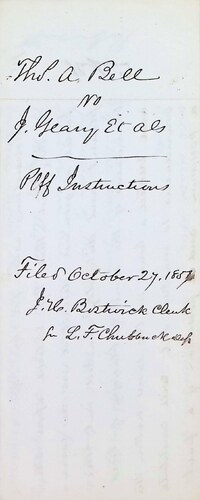 Thos. A Bell
vs
J. Geary Et als
Plff Instructions
Filed October 27, 1857
J. H. Bostwick Clerk
for L. F. Chubbuck Dep